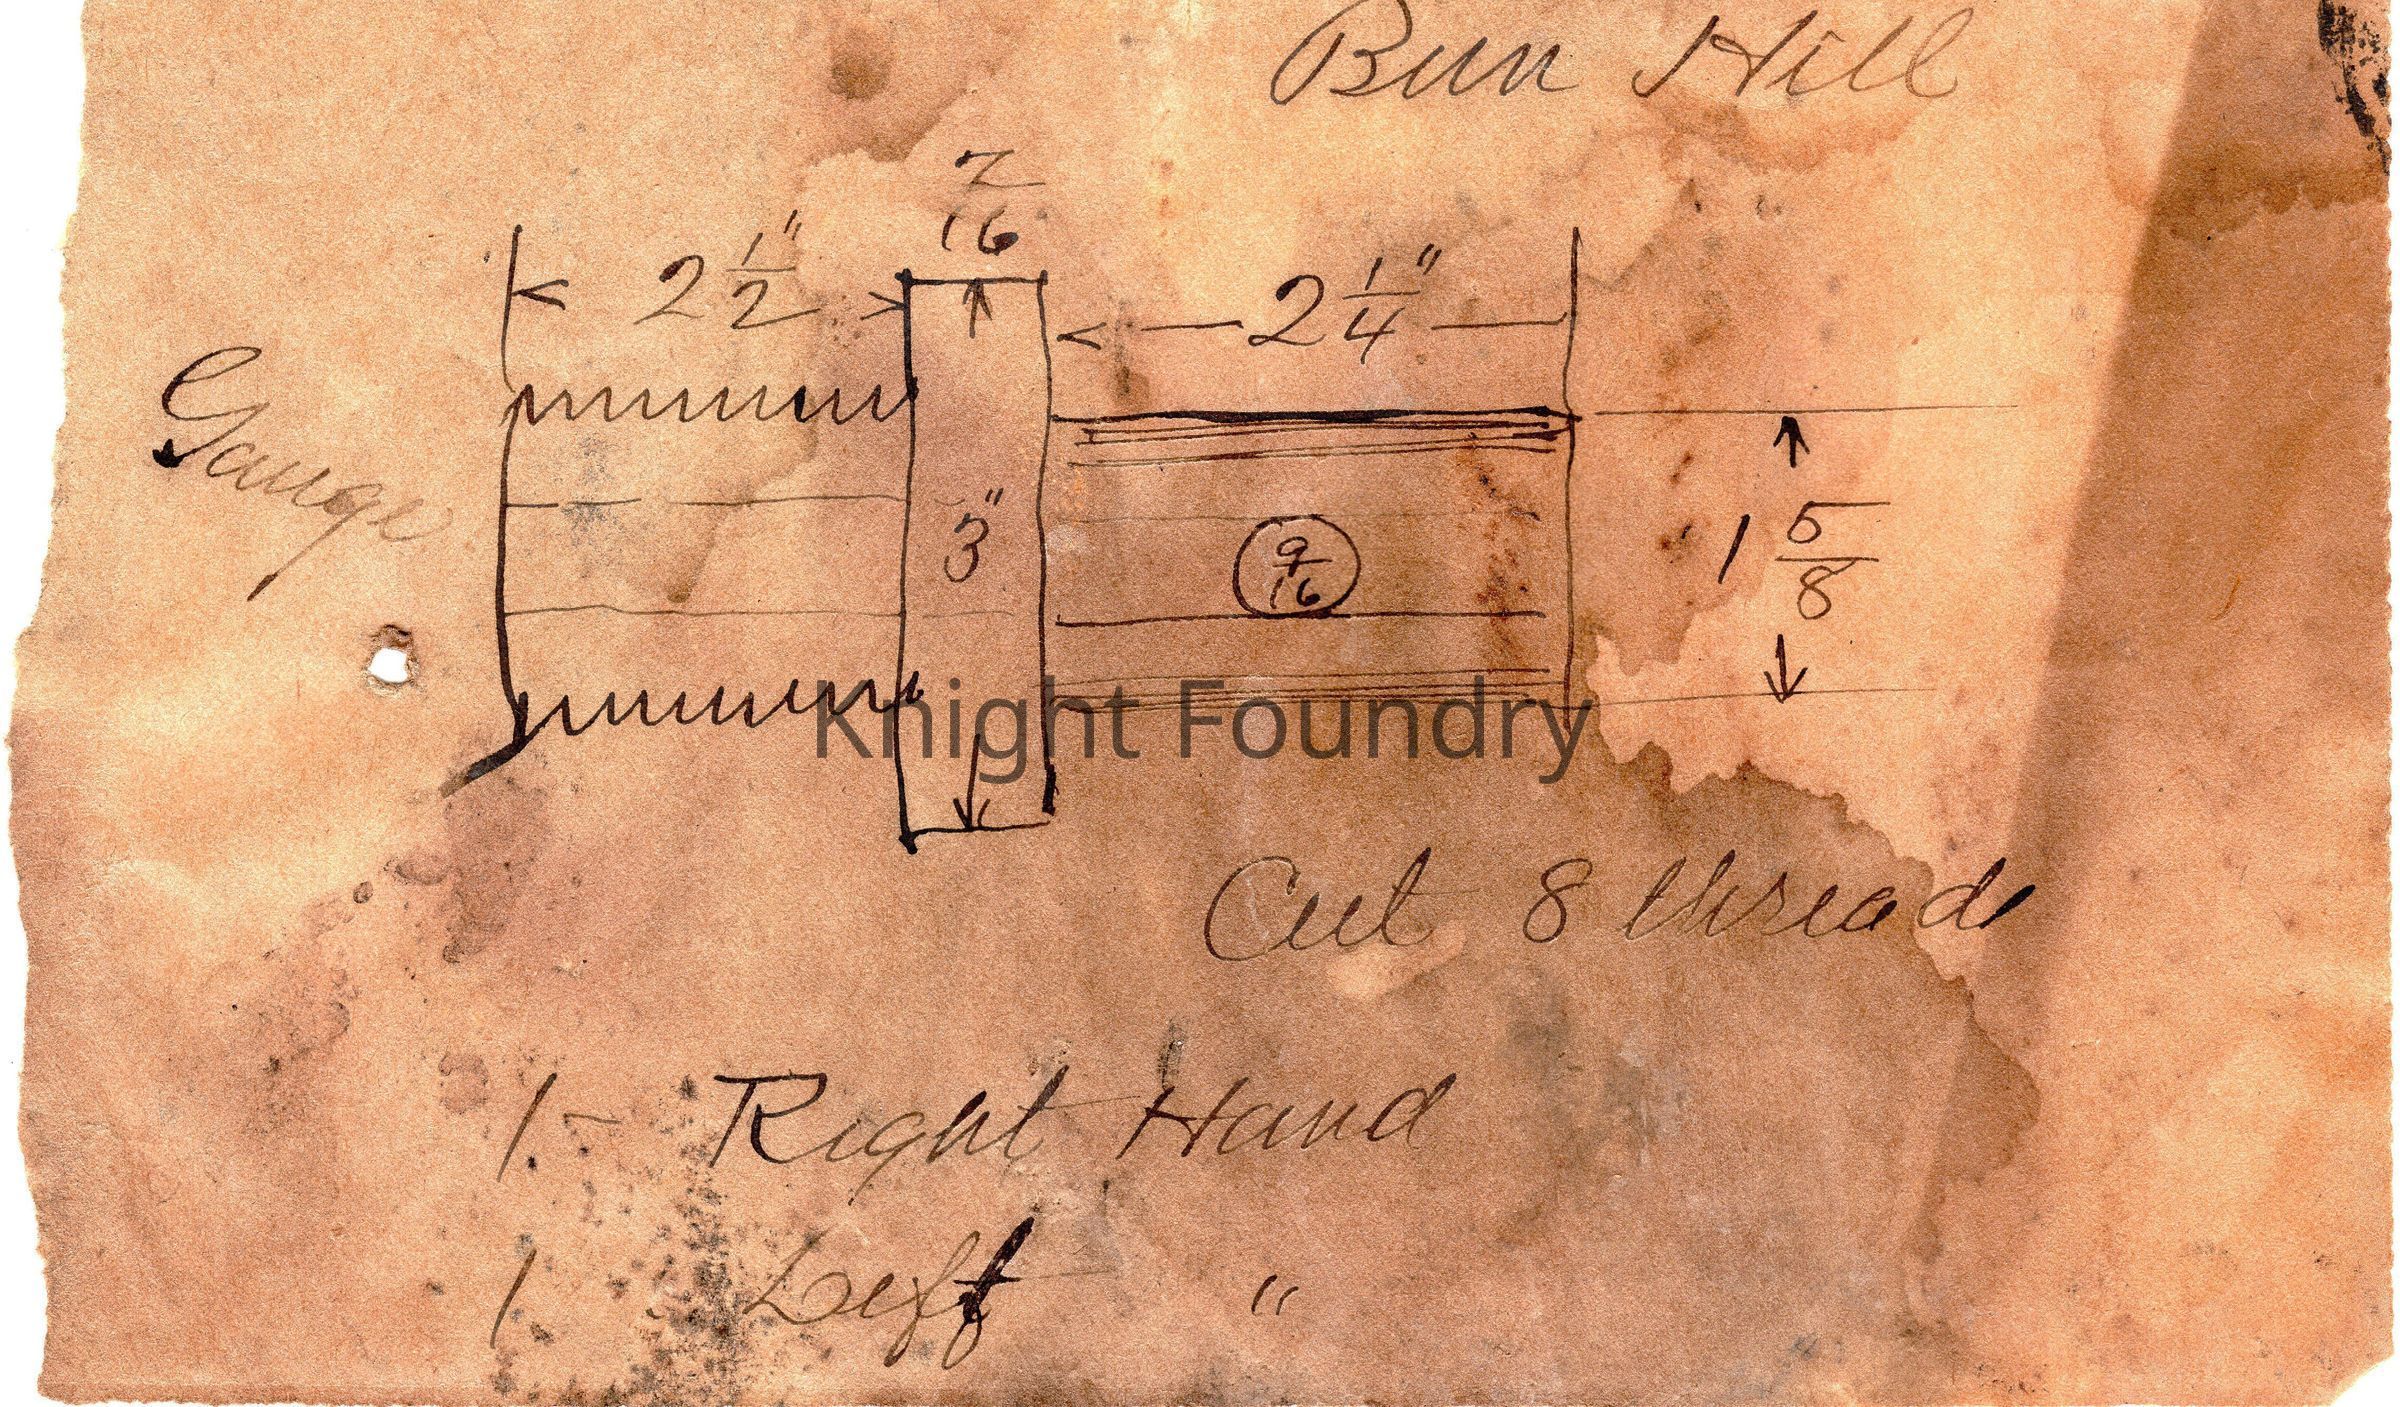 Bun Hill
7/16
2 1/2"
2 1/4"
Gauge
3"
9/16
1 5/8
Knight Foundry
Cut 8 threads
1 - Right Hand
1 Left "